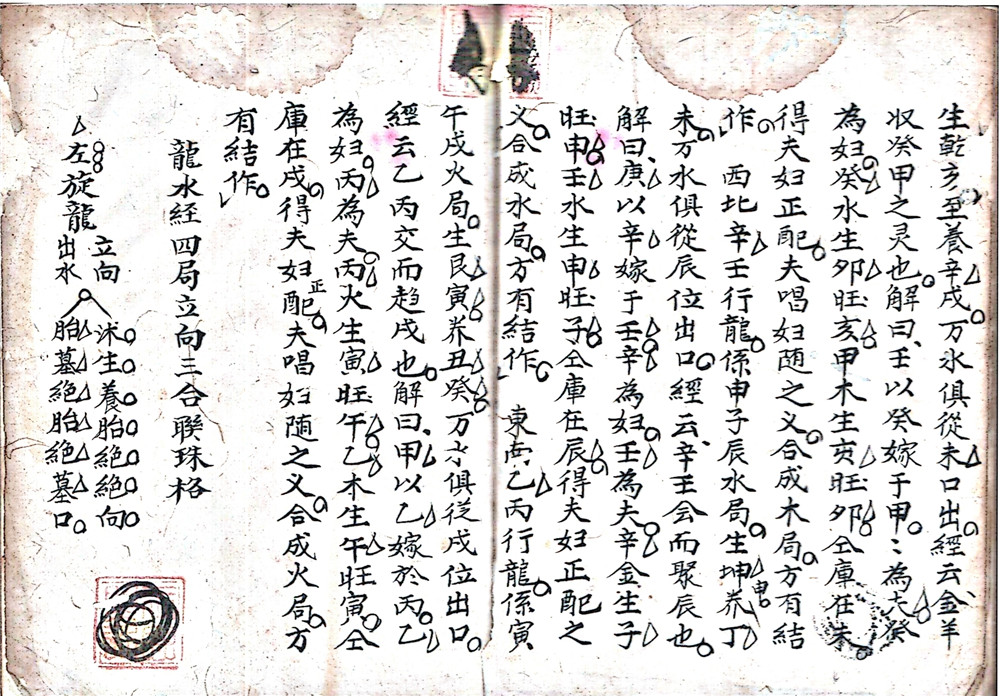 生乾亥至養辛戌万水俱從未口出經云金羊
收癸甲之灵也解曰壬以癸嫁于甲〻為夫癸
為妇癸水生卯旺亥甲木生亥旺卯仝庫在未
得夫妇正配夫唱妇随之义合成木局方有結
作 西北辛壬行龍係申子辰水局生坤申养丁
未万水俱從辰位出口經云辛壬会而聚辰也
解曰庚以辛嫁于壬辛為妇壬為夫辛金生子
旺申壬水生申旺子仝庫在辰得夫妇正配之
义合成水局方有結作 東南乙丙行龍係寅
午戌火局生艮寅养丑癸万水俱從戌位出口
經云乙丙交而趋戌也解曰甲以乙嫁於丙乙
為妇丙為夫丙火生寅旺午乙木生午旺寅仝
庫在戌得夫妇正配夫唱妇随之义合成火局方
有結作
龍水経四局立向三合聯珠格
左旋龍 立向 沐生養胎絕絕向
出水 胎墓絕胎絕墓口